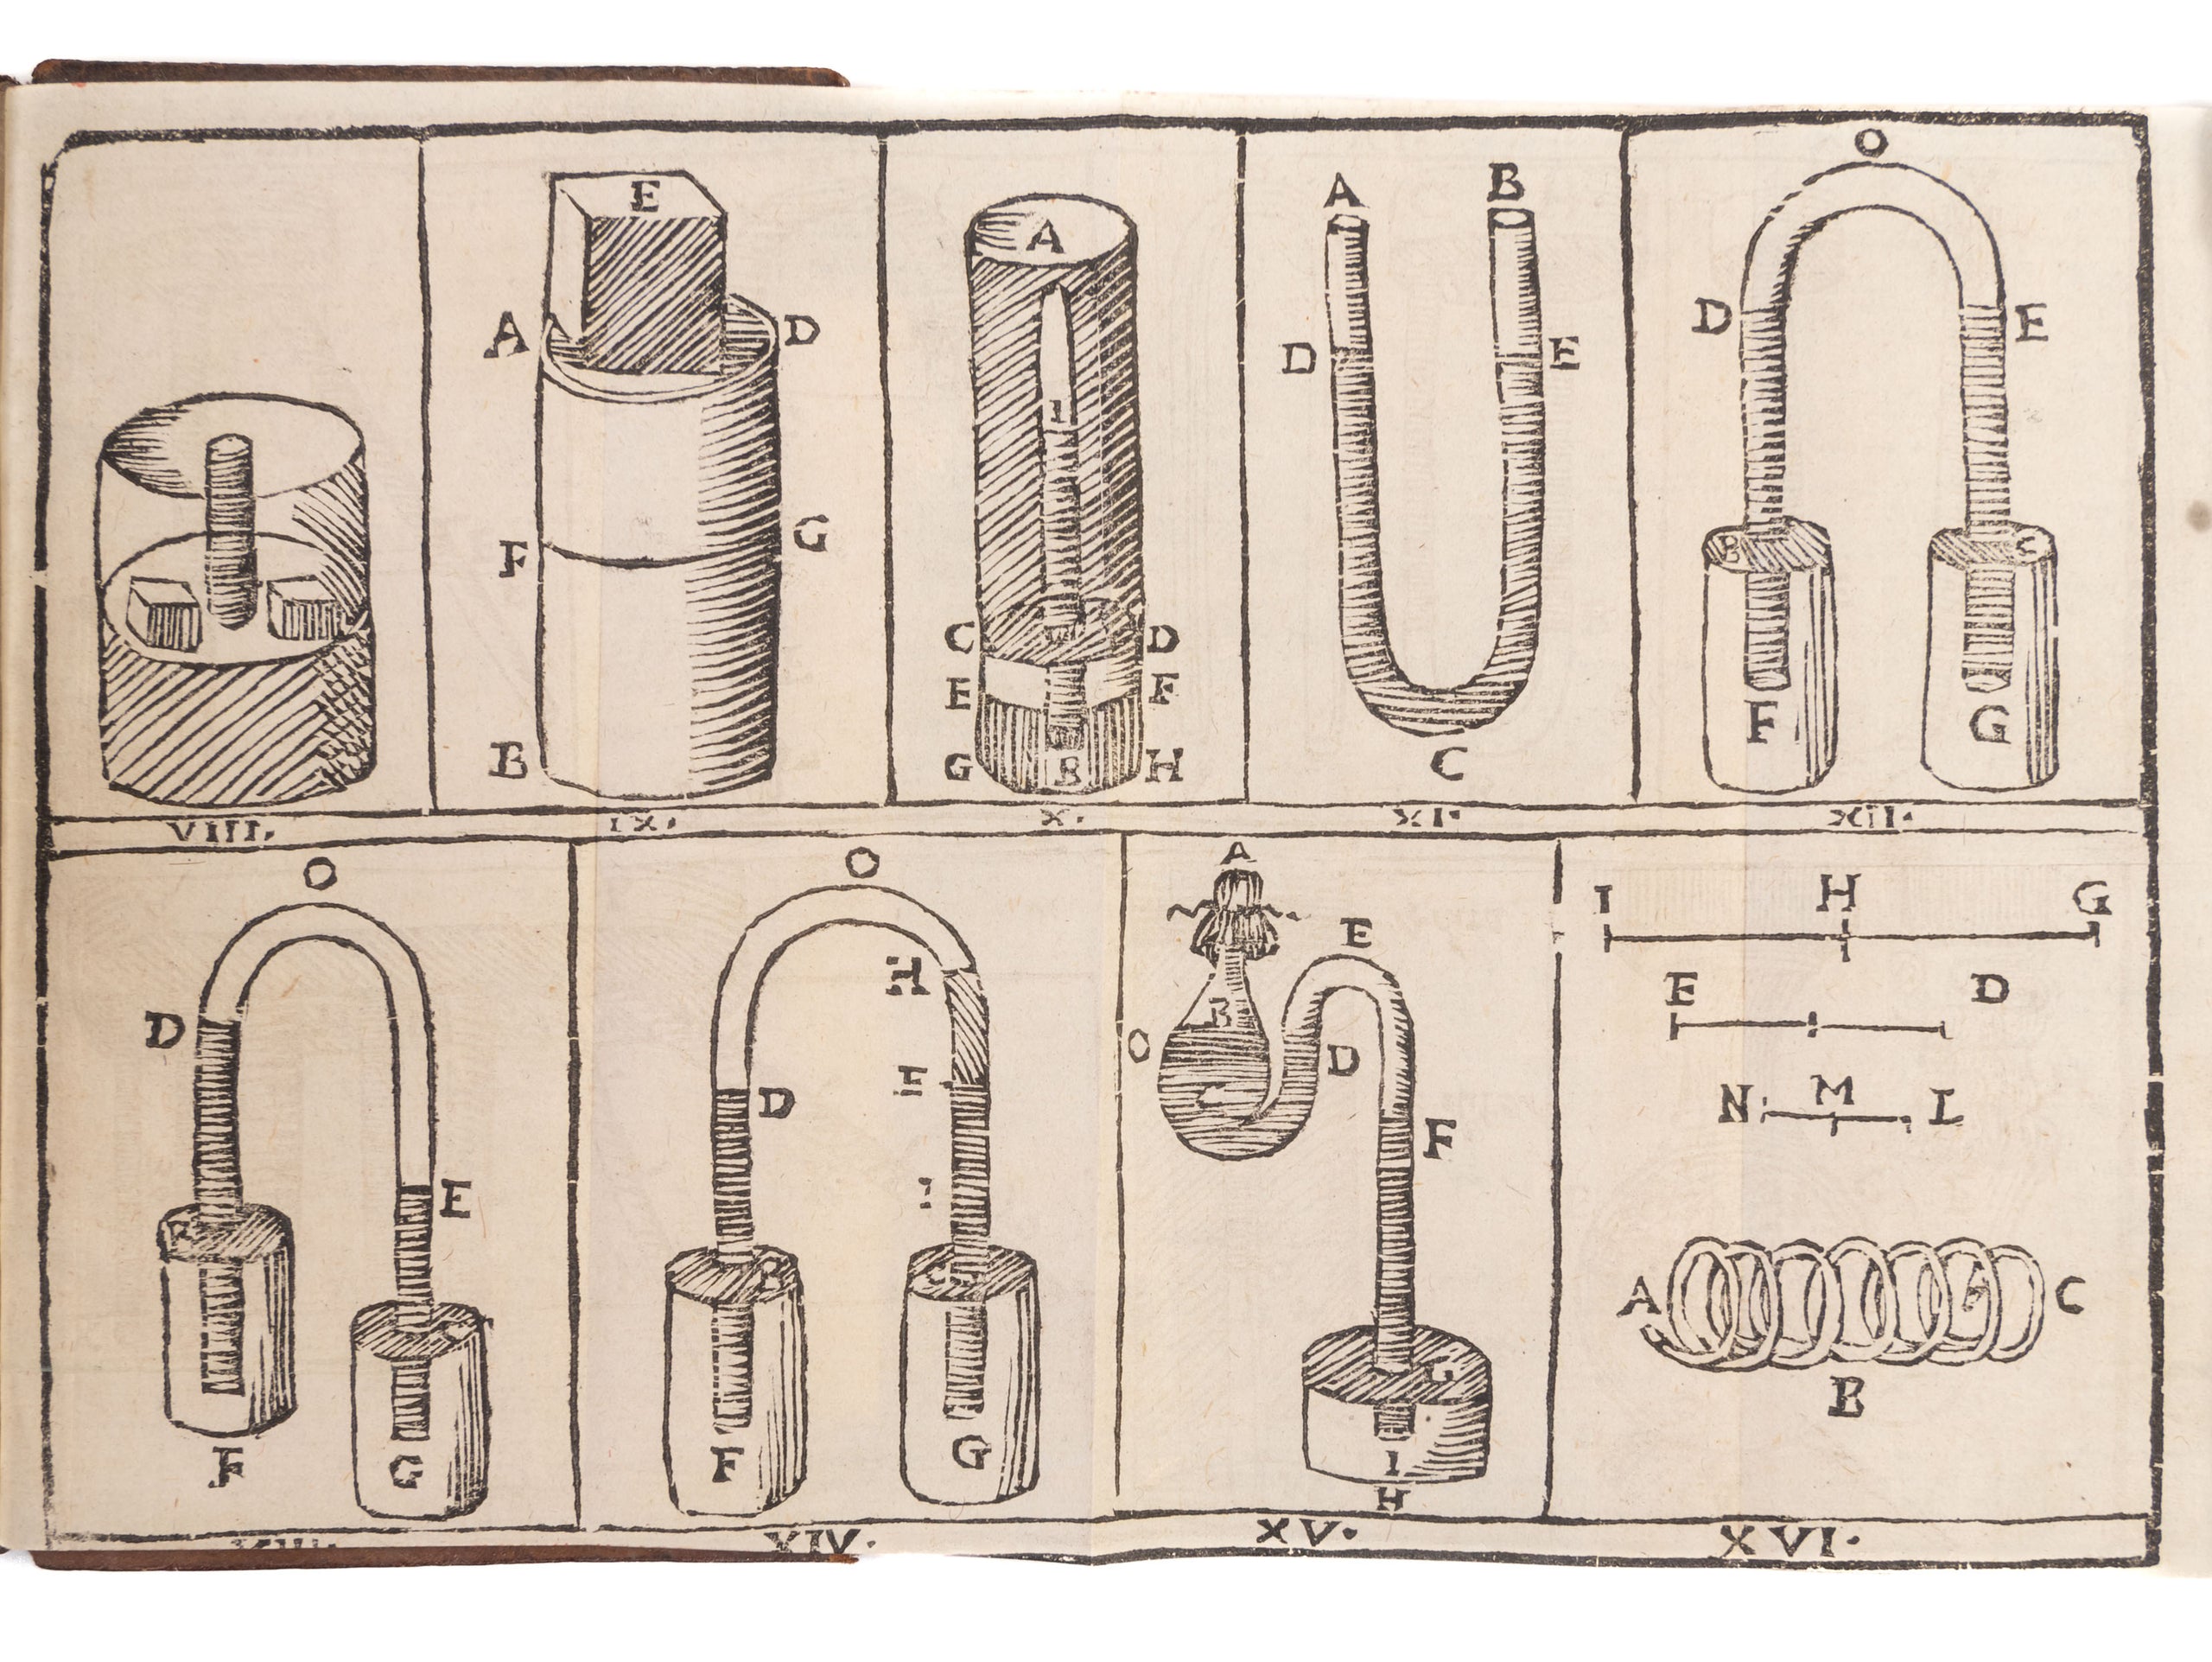 E
A D
F G
B
VIII.
A
I
C D
E F
G B H
IX.
X.
A B
D E
C
XI.
O
D E
B C
F G
XII.
O
D
E
F
G
XIII.
O
H
D
B
F G
XIV.
A
B
E
O D
C
F
G
I
H
XV.
I H G
E D
N M L
A C
B
XVI.